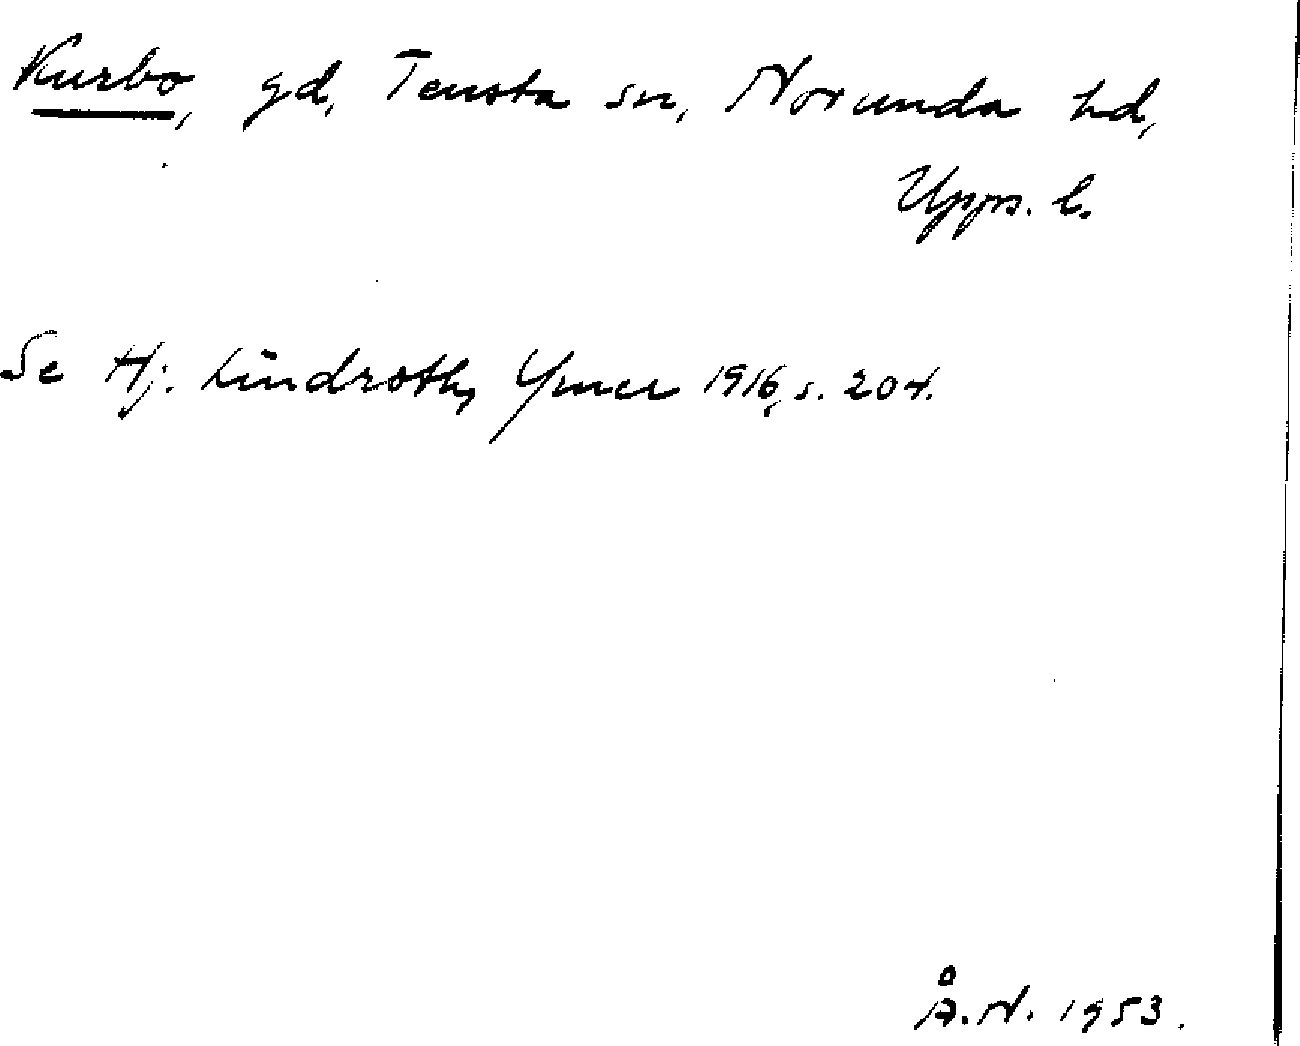 Kurbo, gd, Tensta sn, Norunda hd,
Upps. l.
Se Hj. Lindroth, Ymer 1916, s. 204.
Å.N. 1953.